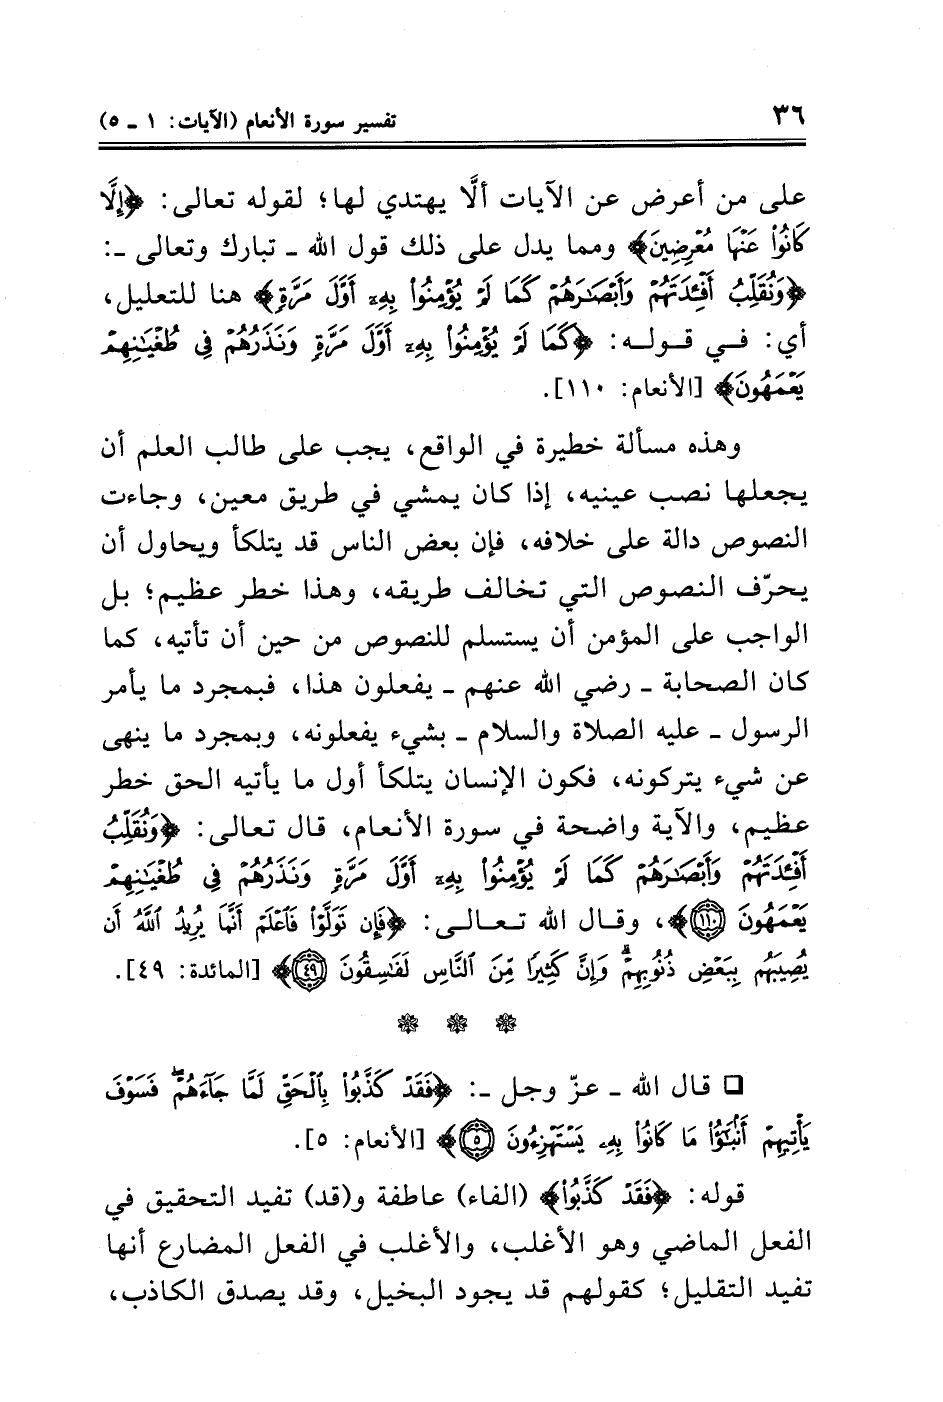 ٣٦
تفسير سورة الأنعام (الآيات: ١ ـ ٥)
على من أعرض عن الآيات ألَّا يهتدي لها؛ لقوله تعالى: ﴿إِلَّا
كَانُوا۟ عَنْهَا مُعْرِضِينَ﴾ ومما يدل على ذلك قول الله ـ تبارك وتعالى ـ:
﴿وَنُقَلِّبُ أَفْـِٔدَتَهُمْ وَأَبْصَـٰرَهُمْ كَمَا لَمْ يُؤْمِنُوا۟ بِهِۦٓ أَوَّلَ مَرَّةٍ﴾ هنا للتعليل،
أي: في قوله: ﴿كَمَا لَمْ يُؤْمِنُوا۟ بِهِۦٓ أَوَّلَ مَرَّةٍ وَنَذَرُهُمْ فِى طُغْيَـٰنِهِمْ
يَعْمَهُونَ﴾ [الأنعام: ١١٠].
وهذه مسألة خطيرة في الواقع، يجب على طالب العلم أن
يجعلها نصب عينيه، إذا كان يمشي في طريق معين، وجاءت
النصوص دالة على خلافه، فإن بعض الناس قد يتلكأ ويحاول أن
يحرّف النصوص التي تخالف طريقه، وهذا خطر عظيم؛ بل
الواجب على المؤمن أن يستسلم للنصوص من حين أن تأتيه، كما
كان الصحابة ـ رضي الله عنهم ـ يفعلون هذا، فبمجرد ما يأمر
الرسول ـ عليه الصلاة والسلام ـ بشيء يفعلونه، وبمجرد ما ينهى
عن شيء يتركونه، فكون الإنسان يتلكأ أول ما يأتيه الحق خطر
عظيم، والآية واضحة في سورة الأنعام، قال تعالى: ﴿وَنُقَلِّبُ
أَفْـِٔدَتَهُمْ وَأَبْصَـٰرَهُمْ كَمَا لَمْ يُؤْمِنُوا۟ بِهِۦٓ أَوَّلَ مَرَّةٍ وَنَذَرُهُمْ فِى طُغْيَـٰنِهِمْ
يَعْمَهُونَ ١١٠﴾، وقال الله تعالى: ﴿فَإِن تَوَلَّوْا۟ فَٱعْلَمْ أَنَّمَا يُرِيدُ ٱللَّهُ أَن
يُصِيبَهُم بِبَعْضِ ذُنُوبِهِمْ ۗ وَإِنَّ كَثِيرًا مِّنَ ٱلنَّاسِ لَفَـٰسِقُونَ ٤٩﴾ [المائدة: ٤٩].
❁ ❁ ❁
□ قال الله ـ عزّ وجل ـ: ﴿فَقَدْ كَذَّبُوا۟ بِٱلْحَقِّ لَمَّا جَآءَهُمْ ۖ فَسَوْفَ
يَأْتِيهِمْ أَنۢبَـٰٓؤُا۟ مَا كَانُوا۟ بِهِۦ يَسْتَهْزِءُونَ ٥﴾ [الأنعام: ٥].
قوله: ﴿فَقَدْ كَذَّبُوا۟﴾ (الفاء) عاطفة و(قد) تفيد التحقيق في
الفعل الماضي وهو الأغلب، والأغلب في الفعل المضارع أنها
تفيد التقليل؛ كقولهم قد يجود البخيل، وقد يصدق الكاذب،